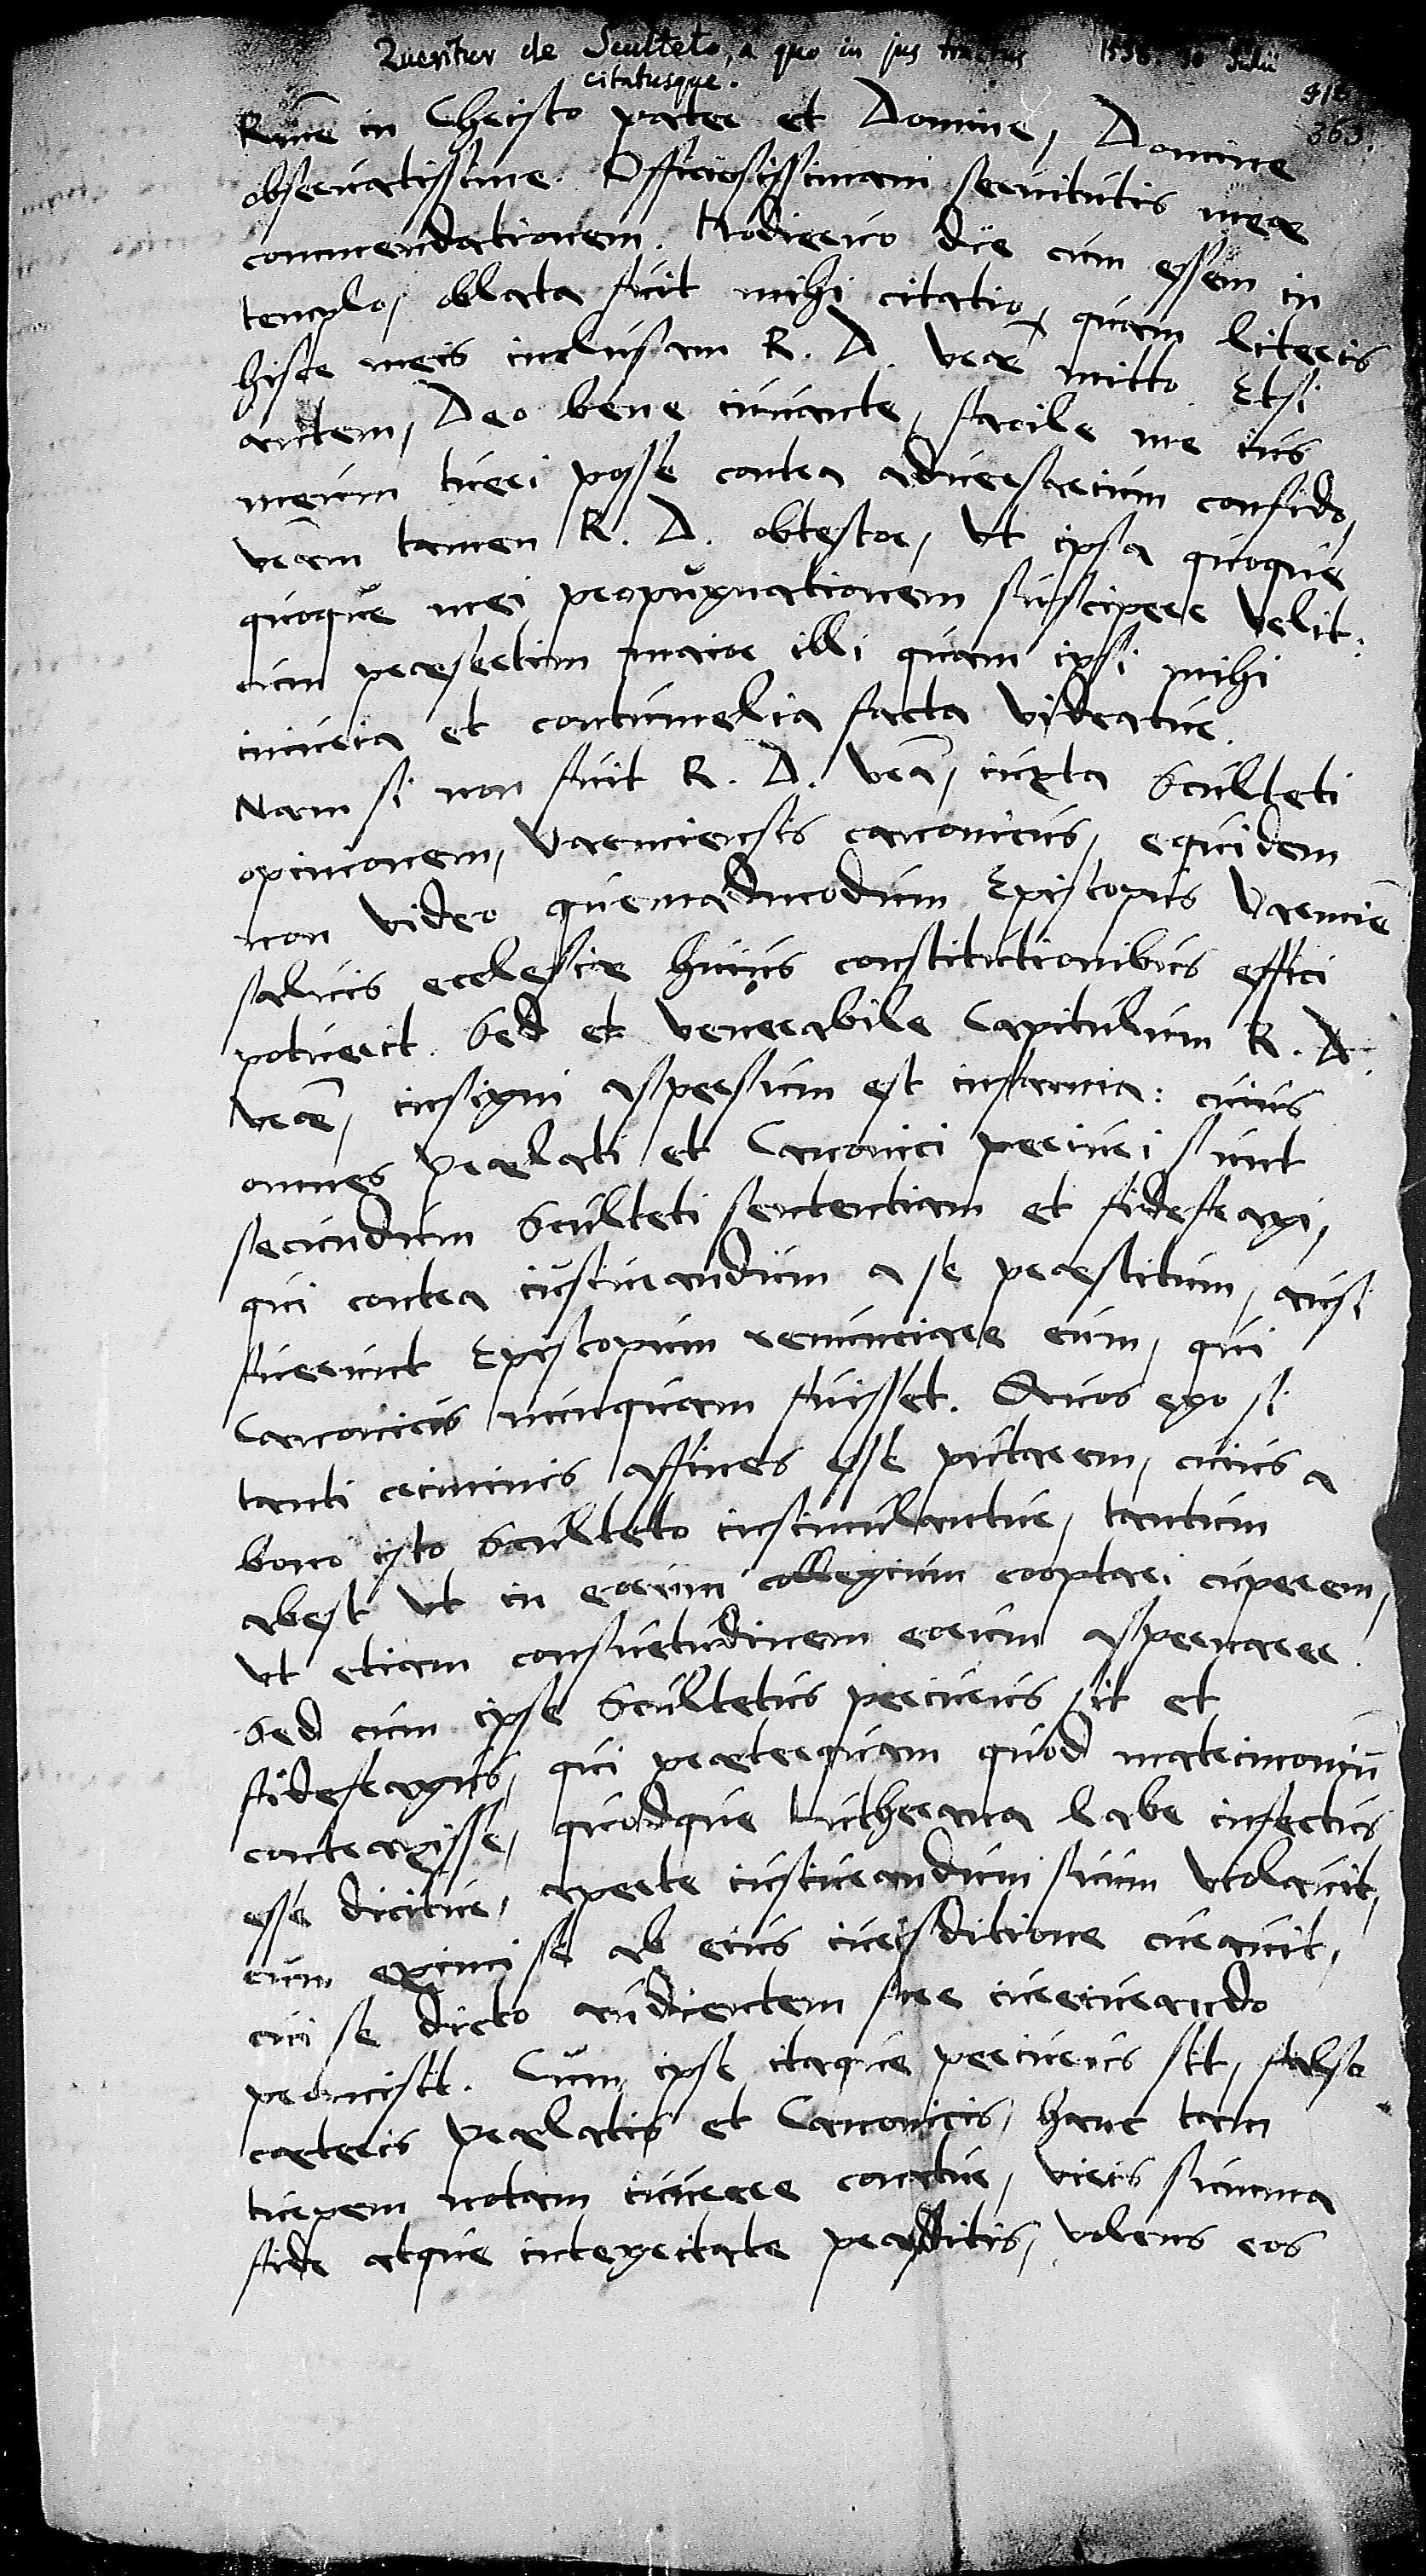 Queritur de Sculteto, a quo in jus tractus 1538. 30 Julii
citatusque.
363.
Rme in Christo pater et Domine, Domine
observatissime. Officiosissimam servitutis meae
commendationem. Hodierno die cum essem in
templo, oblata fuit mihi citatio, quam literis
hisce meis inclusam R. D. vrae mitto. Etsi
autem, Deo bene iuvante, facile me ius
meum tueri posse contra adversarium confido,
vram tamen R. D. obtestor, ut ipsa quoque
quoque mei propugnationem suscipere velit:
cum praesertim maior illi quam ipsi mihi
iniuria et contumelia facta videatur.
Nam si non fuit R. D. vra, iuxta Sculteti
opinionem, Varmiensis canonicus, equidem
non video quemadmodum Episcopus Varmien
salvis ecclesiae huius constitutionibus effici
potuerit. Sed et venerabile Capitulum R. D.
vrae, insigni aspersum est infamia: cuius
omnes Praelati et Canonici periuri sunt
secundum Sculteti sententiam et fidefragi,
qui contra iusiurandum a se praestitum, ausi
fuerunt Episcopum renunciare eum, qui
Canonicus nunquam fuisset. Quos ego si
tanti criminis affines esse putarem, cuius a
bono isto Sculteto insimulantur, tantum
abest ut in eorum collegium cooptari cuperem,
ut etiam consuetudinem eorum aspernarer.
Sed cum ipse Scultetus periurus sit et
fidefragus, qui praeterquam quod matrimoniu
contraxisse, quodque Lutherana labe infectus
esse dicitur, aperte iusiurandum suum violavit,
cum eximi se ab eius iurisditione curavit,
cui se dicto audientem fore iureiurando
promisit. Cum ipse itaque periurus sit, falso
caeteris Praelatis et Canonicis, hanc tam
turpem notam inurere conatur, viris summa
fide atque integritate praeditis, volens eos